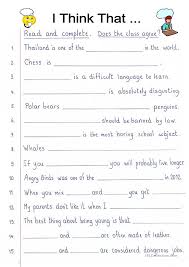 I Think That ...
Read and complete. Does the class agree?
1 Thailand is one of the ____ in the world.
2 Chess is ____
3 ____ is a difficult language to learn.
4 ____ is absolutely disgusting.
5 Polar bears ____ penguins.
6 ____ should be banned by law.
7 ____ is the most boring school subject.
8 Whales ____
9 If you ____ you will probably live longer
10 Angry Birds was one of the ____ in 2012.
11 When you mix ____ and ____ you get ____
12 My parents don't like it when I ____
13 The best thing about being young is that ____
14 ____ and ____ are often made of leather.
15 ____ and ____ are considered dangerous jobs.